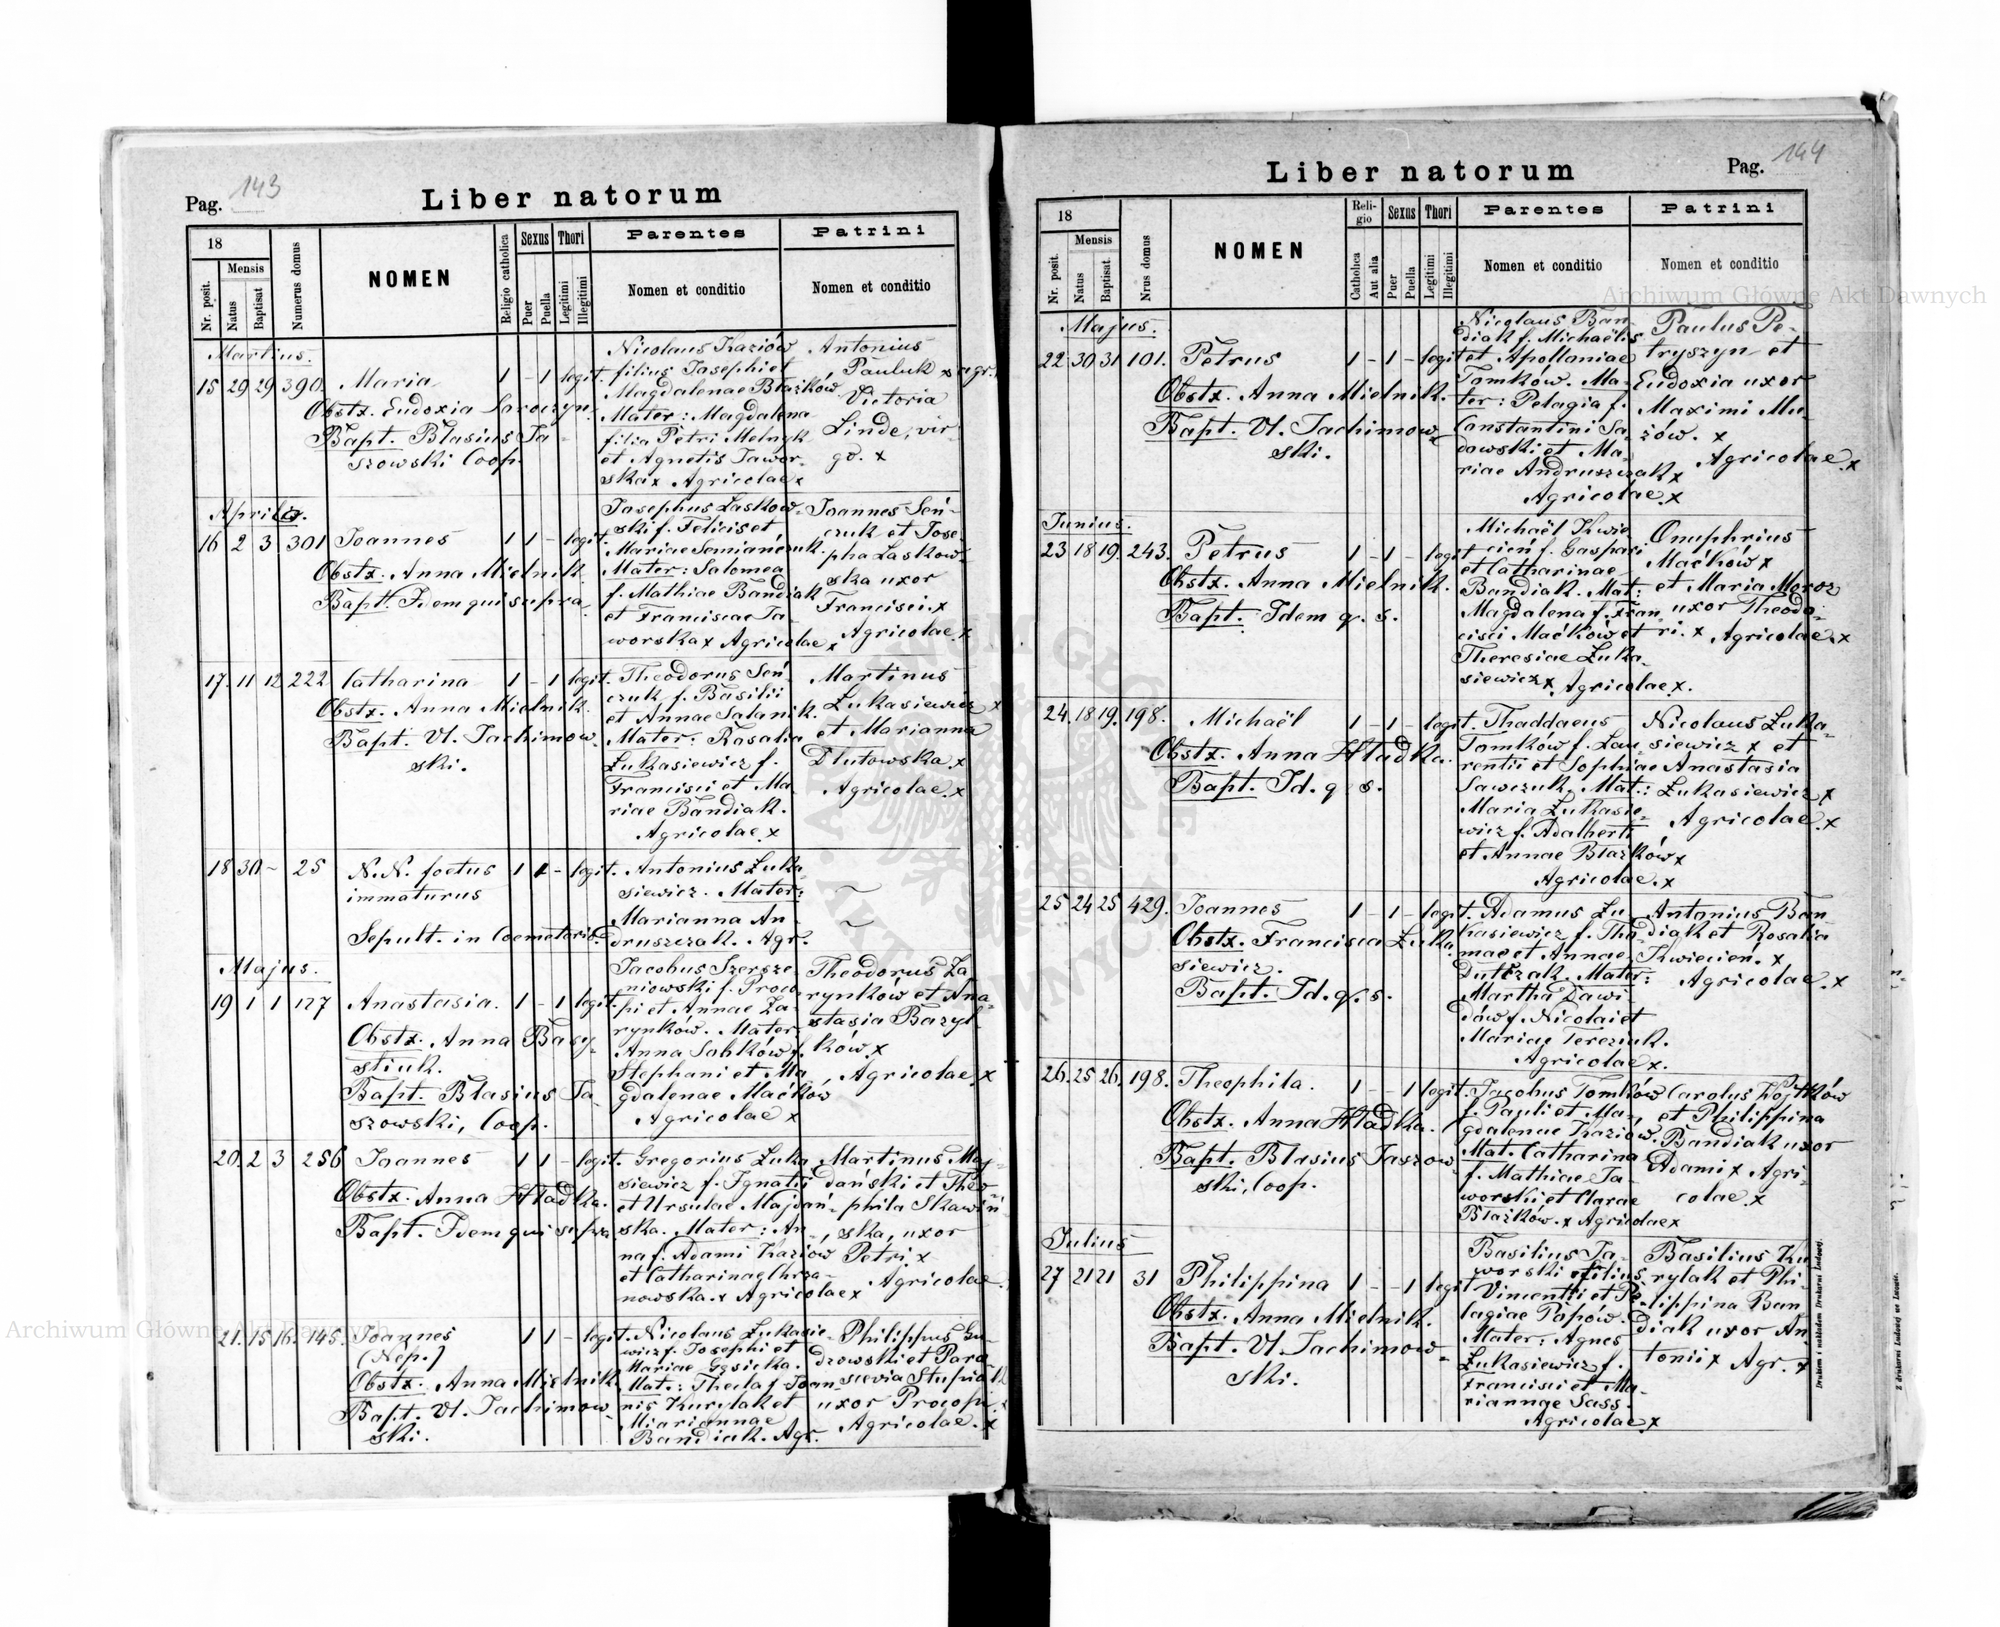 Pag. 143
Liber natorum
18
Mensis
Nr. posit.
Natus
Baptisat
Numerus domus
NOMEN
Religio catholica
Sexus
Puer
Puella
Thori
Legitimi
Illegitimi
Parentes
Nomen et conditio
Patrini
Nomen et conditio
Martius.
15 29 29 390. Maria 1 - 1 legit.
Obstx. Eudoxia
Bapt. Blasius Ja-
szowski Coop.
Nicolaus Kaziów
filius Josephi et
Magdalenae Błażków
Mater: Magdalena
filia Petri Melnyk
et Agnetis Jawor-
ska x Agricolae x
Antonius
Pauluk x agr.
Victoria
Linde, vir-
go. x
Aprilis.
16 2 3 301 Joannes 1 1 - legit.
Obstx. Anna Mielnik.
Bapt. Idem qui supra
Josephus Laskow-
ski f. Felicis et
Mariae Semiańczuk.
Mater: Salomea
f. Mathiae Bandiak
et Franciscae Ja-
worska x Agricolae x
Joannes Seń-
czuk et Jose-
pha Laskow-
ska uxor
Francisci. x
Agricolae. x
17. 11 12 222 Catharina 1 - 1 legit.
Obstx. Anna Mielnik.
Bapt. Vl. Jachimow-
ski.
Theodorus Seń-
czuk f. Basilii
et Annae Salanik.
Mater: Rosalia
Łukasiewicz f.
Francisci et Ma-
riae Bandiak.
Agricolae. x
Martinus
Łukasiewicz x
et Marianna
Dłutowska. x
Agricolae. x
18 30 - 25 N. N. foetus 1 1 - legit.
immaturus
Sepult. in Coemeterio.
Antonius Łuka-
siewicz. Mater:
Marianna An-
druszczak. Agr.
Majus.
19 1 1 127 Anastasia. 1 - 1 legit.
Obstx. Anna Basy-
stiuk.
Bapt. Blasius Ja-
szowski, Coop.
Jacobus Szersze-
niowski f. Proco-
pi et Annae Za-
rynków. Mater
Anna Sobków f.
Stephani et Ma-
gdalenae Maćków
Agricolae x
Theodorus Za-
rynków et Ana-
stasia Bazyl-
ków. x
Agricolae. x
20. 2 3 256 Joannes 1 1 - legit.
Obstx. Anna Hładka.
Bapt. Idem qui supra
Gregorius Łuka-
siewicz f. Ignatii
et Ursulae Majdań-
ska. Mater: An-
na f. Adami Kaziów
et Catharinae Chrza-
nowska. x Agricolae x
Martinus Maj-
dański et Theo-
phila Skawiń-
ska, uxor
Petri. x
Agricolae.
21. 15 16. 145. Joannes 1 1 - legit.
(Nep.)
Obstx. Anna Mielnik
Bapt. Vl. Jachimow-
ski.
Nicolaus Łukasie-
wicz f. Josephi et
Mariae Gęsicka.
Mat.: Thecla f. Joan-
nis Kurylak et
Mariannae
Bandiak. Agr.
Philippus Gu-
dzowski et Para-
scevia
uxor Procopi. x
Agricolae. x
Liber natorum
Pag. 144
18
Mensis
Nr. posit.
Natus
Baptisat.
Nrus domus
NOMEN
Reli-
gio
Catholica
Aut alia
Sexus
Puer
Puella
Thori
Legitimi
Illegitimi
Parentes
Nomen et conditio
Patrini
Nomen et conditio
Majus.
22. 30 31 101. Petrus 1 - 1 - legit
Obstx. Anna Mielnik.
Bapt. Vl. Jachimow-
ski.
Nicolaus Ban-
diak f. Michaëlis
et Apolloniae
Tomków. Ma-
ter: Pelagia f.
Constantini Sa-
dowski et Ma-
riae Andruszczak x
Agricolae. x
Paulus Pe-
tryszyn et
Eudoxia uxor
Maximi Mu-
zów. x
Agricolae. x
Junius.
23 18 19. 243. Petrus 1 - 1 - legit
Obstx. Anna Mielnik.
Bapt. Idem q. s.
Michaël Kwie-
cień f. Gaspari
et Catharinae
Bandiak. Mat:
Magdalena f. Fran-
cisci Maćków et
Theresiae Łuka-
siewicz x Agricolae. x.
Onuphrius
Maćków x
et Maria Moroz
uxor Theodo-
ri. x Agricolae. x
24. 18 19. 198. Michaël 1 - 1 - legit.
Obstx. Anna Hładka.
Bapt. Id. q. s.
Thaddaeus
Tomków f. Lau-
rentii et Sophiae
Sawczuk. Mat.:
Maria Łukasie-
wicz f. Adalberti
et Annae Błażków x
Agricolae. x
Nicolaus Łuka-
siewicz x et
Anastasia
Łukasiewicz x
Agricolae. x
25 24 25 429. Joannes 1 - 1 - legit.
Obstx. Francisca Łuka-
siewicz.
Bapt. Id. q. s.
Adamus Łu-
kasiewicz f. Tho-
mae et Annae
Dutczak. Mater:
Martha Dawi-
dów f. Nicolai et
Mariae Tereziuk.
Agricolae x.
Antonius Ban-
diak et Rosalia
Kwiecień. x
Agricolae. x
26. 25 26. 198. Theophila. 1 - - 1 legit.
Obstx. Anna Hładka.
Bapt. Blasius Jaszow-
ski, Coop.
Jacobus Tomków
f. Pauli et Ma-
gdalenae Kaziów.
Mat. Catharina
f. Mathiae Ja-
worski et Clarae
Błażków. x Agricolae x
Carolus Wojtków
et Philippina
Bandiak uxor
Adami x Agri-
colae. x
Julius
27 21 21 31 Philippina 1 - - 1 legit
Obstx. Anna Mielnik.
Bapt. Vl. Jachimow-
ski.
Basilius Ja-
worski filius
Vincentii et Pe-
lagiae Popów.
Mater: Agnes
Łukasiewicz f.
Francisci et Ma-
riannae Sass.
Agricolae x
Basilius Ku-
rylak et Phi-
lippina Ban-
diak uxor An-
tonii x Agr. x
Drukiem i nakładem Drukarni Ludowej.
Z drukarni Ludowej we Lwowie.
Archiwum Główne Akt Dawnych
Archiwum Główne Akt Dawnych